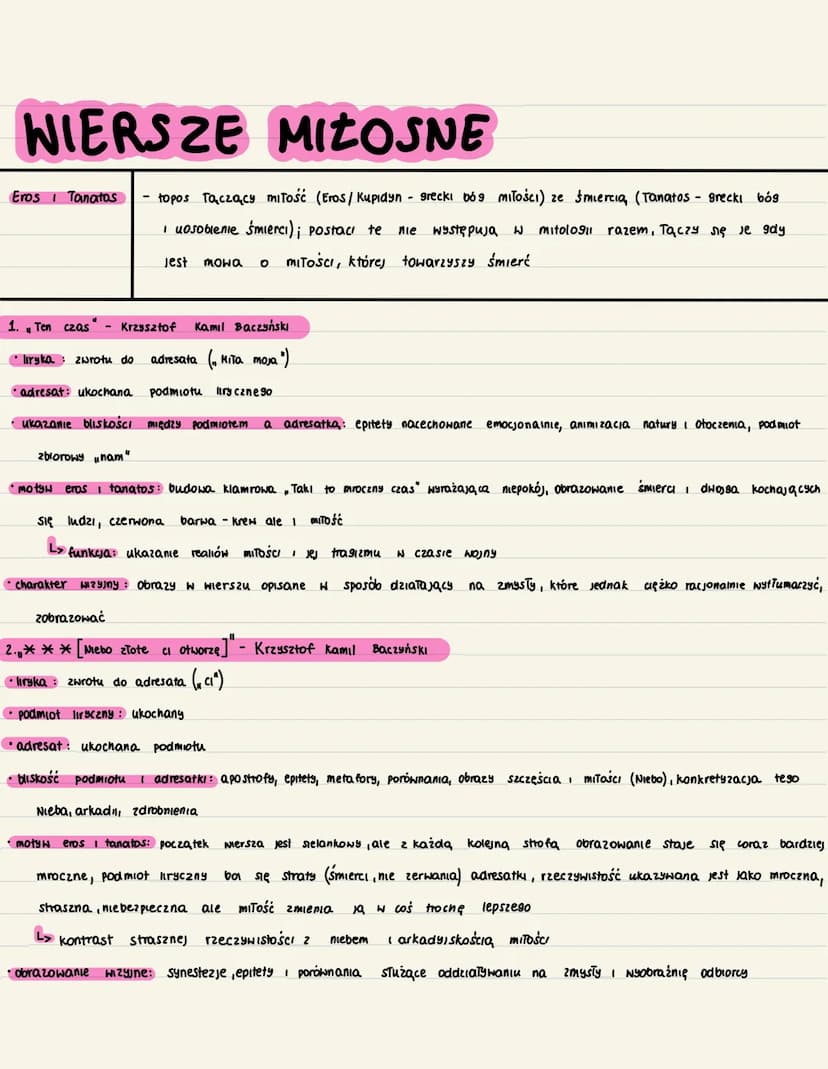 WIERSZE MIŁOSNE
Eros i Tanatos
- topos łączący miłość (Eros/Kupidyn - grecki bóg miłości) ze śmiercią (Tanatos - grecki bóg
i uosobienie śmierci); postaci te nie występują w mitologii razem, łączy się je gdy
jest mowa o miłości, której towarzyszy śmierć
1. „Ten czas" - Krzysztof Kamil Baczyński
• liryka: zwrotu do adresata („Miła moja")
• adresat: ukochana podmiotu lirycznego
• ukazanie bliskości między podmiotem a adresatką: epitety nacechowane emocjonalnie, animizacja natury i otoczenia, podmiot
zbiorowy „nam"
• motyw eros i tanatos: budowa klamrowa „Taki to mroczny czas" wyrażająca niepokój, obrazowanie śmierci i dwojga kochających
się ludzi, czerwona barwa - krew ale i miłość
↳ funkcja: ukazanie realiów miłości i jej tragizmu w czasie wojny
• charakter wizyjny: obrazy w wierszu opisane w sposób działający na zmysły, które jednak ciężko racjonalnie wytłumaczyć,
zobrazować
2. „* * * [Niebo złote ci otworzę]" - Krzysztof Kamil Baczyński
• liryka: zwrotu do adresata („ci")
• podmiot liryczny: ukochany
• adresat: ukochana podmiotu
• bliskość podmiotu i adresatki: apostrofy, epitety, metafory, porównania, obrazy szczęścia i miłości (Niebo), konkretyzacja tego
Nieba, arkadii, zdrobnienia
• motyw eros i tanatos: początek wiersza jest sielankowy, ale z każdą kolejną strofą obrazowanie staje się coraz bardziej
mroczne, podmiot liryczny boi się straty (śmierci, nie zerwania) adresatki, rzeczywistość ukazywana jest jako mroczna,
straszna, niebezpieczna ale miłość zmienia ją w coś trochę lepszego
↳ kontrast strasznej rzeczywistości z niebem i arkadyjskością miłości
• obrazowanie wizyjne: synestezje, epitety i porównania służące oddziaływaniu na zmysły i wyobraźnię odbiorcy